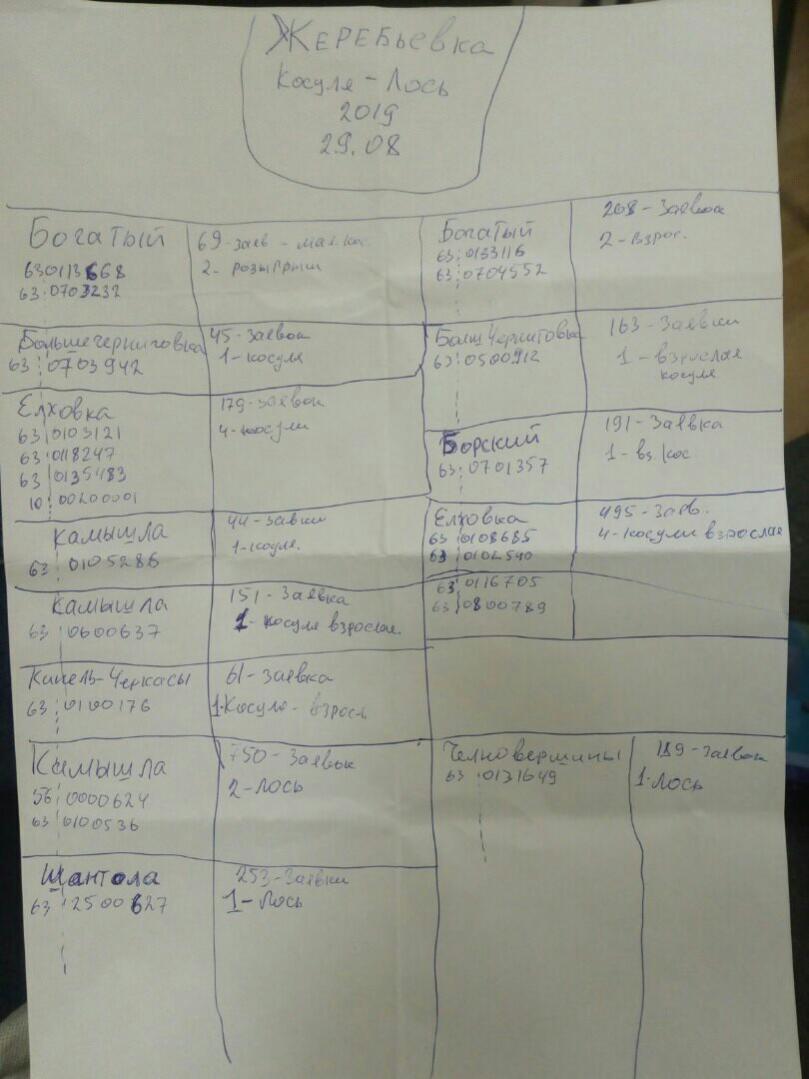 Жеребьевка
Косуля - Лось
2019
29.08
Богатый
63 0113668
63 0703232
69-заяв -
2- розыгрыш
Богатый
63 0133116
63 0704552
268 - Заявок
2 - взрос.
Большечерниговка
63 0703942
45-Заявок
1 - косуля
Больш Черниговка
63 0500912
163 - Заявки
1 - взрослая
косуля
Елховка
63 0103121
63 0118247
63 0135483
10 00200001
179-Заявок
4-косули
Борский
63 0701357
191 - Заявка
1 - вз. кос.
Камышла
63 0105286
44-Заявки
1-косуля.
Елховка
63 0108685
63 0102540
63 0116705
63 0800789
495 - Заяв.
4- косули взрослая
Камышла
63 0600637
151 - Заявка
1- косуля взрослая.
Кинель-Черкасы
63 0100176
61 - Заявка
1. Косуля - взросл
Камышла
56 0000624
63 0100536
750 - Заявок
2 - Лось
Челновершины
63 0131649
189 - Заявок
1. Лось
Шантала
63 2500627
253 - Заявки
1 - Лось